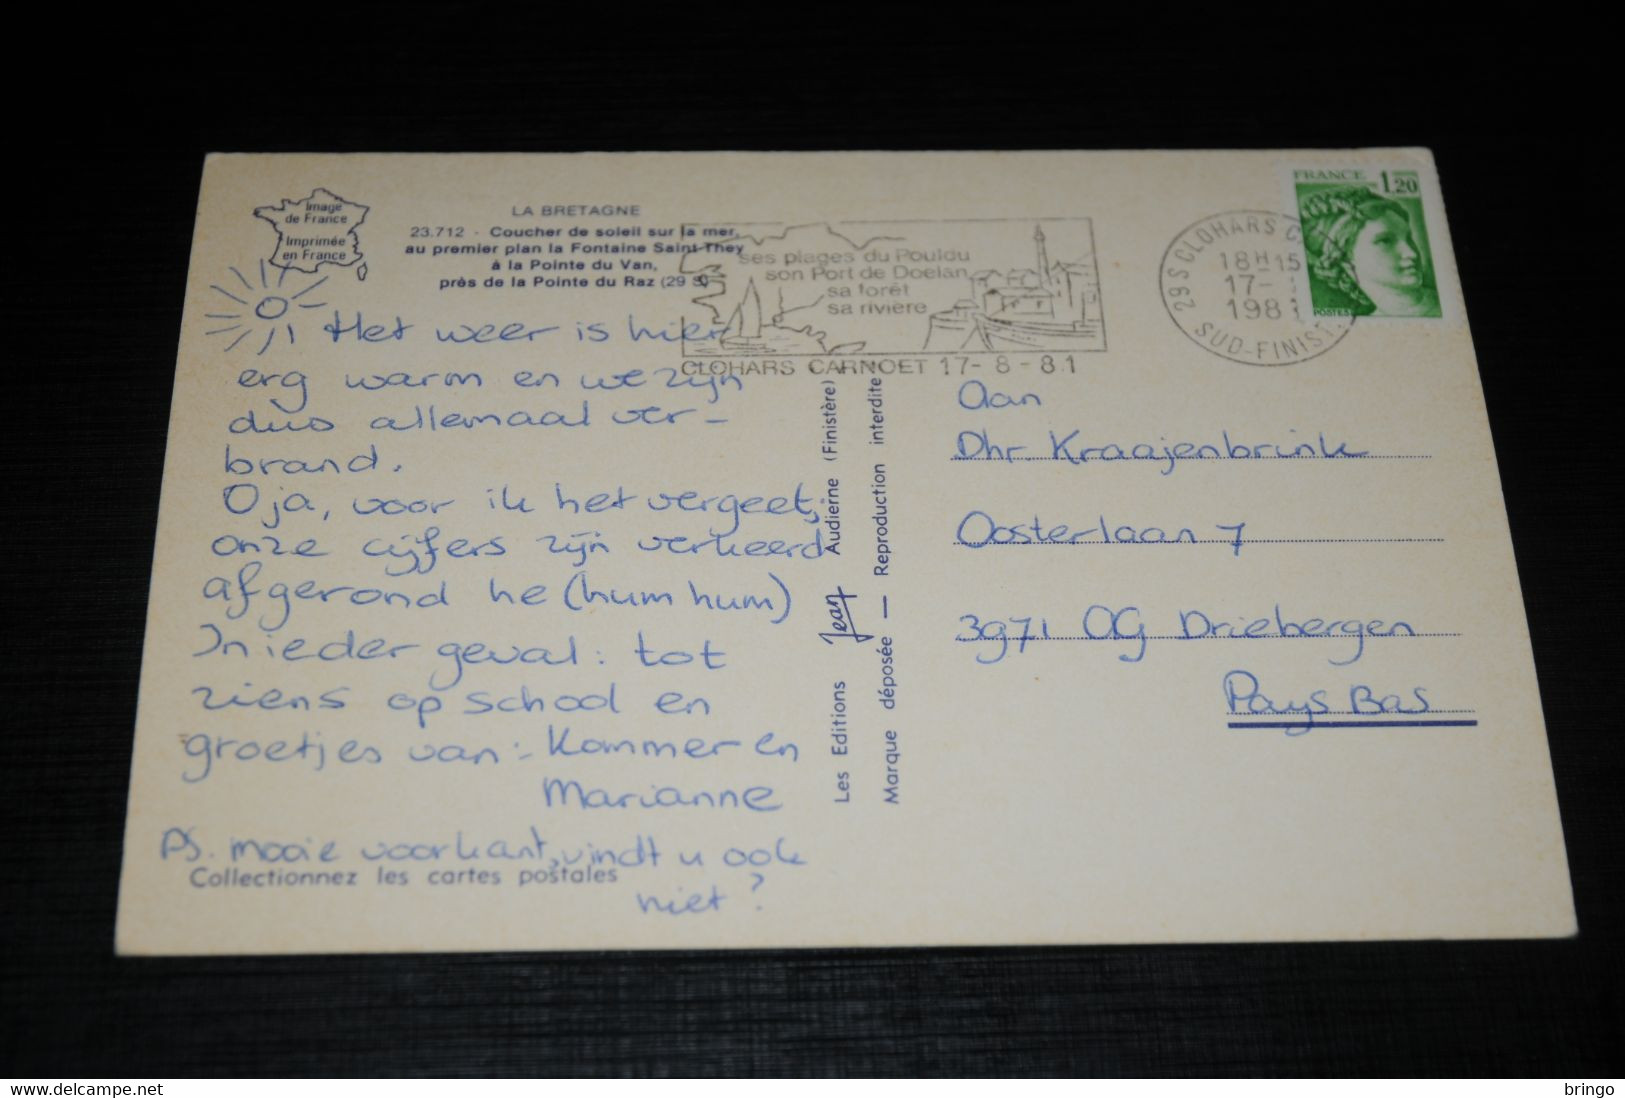 Image
de France
Imprimée
en France
LA BRETAGNE
23.712 - Coucher de soleil sur la mer,
au premier plan la Fontaine Saint They
à la Pointe du Van,
près de la Pointe du Raz (29 S)
Het weer is hier
erg warm en we zijn
dus allemaal ver-
brand.
O ja, voor ik het vergeet,
onze cijfers zijn verkeerd
afgerond he (hum hum)
In ieder geval: tot
ziens op school en
groetjes van: Kommer en
Marianne
PS. mooie voorkant, vindt u ook
niet?
Collectionnez les cartes postales
Les Editions Jean Audierne (Finistère)
Marque déposée — Reproduction interdite
ses plages du Pouldu
son Port de Doelan
sa forêt
sa rivière
CLOHARS CARNOET 17-8-81
29S CLOHARS C
18H15
17-
1981
SUD-FINIST.
FRANCE 1,20
POSTES
Aan
Dhr Kraajenbrink
Oosterlaan 7
3971 OG Driebergen
Pays Bas
bringo